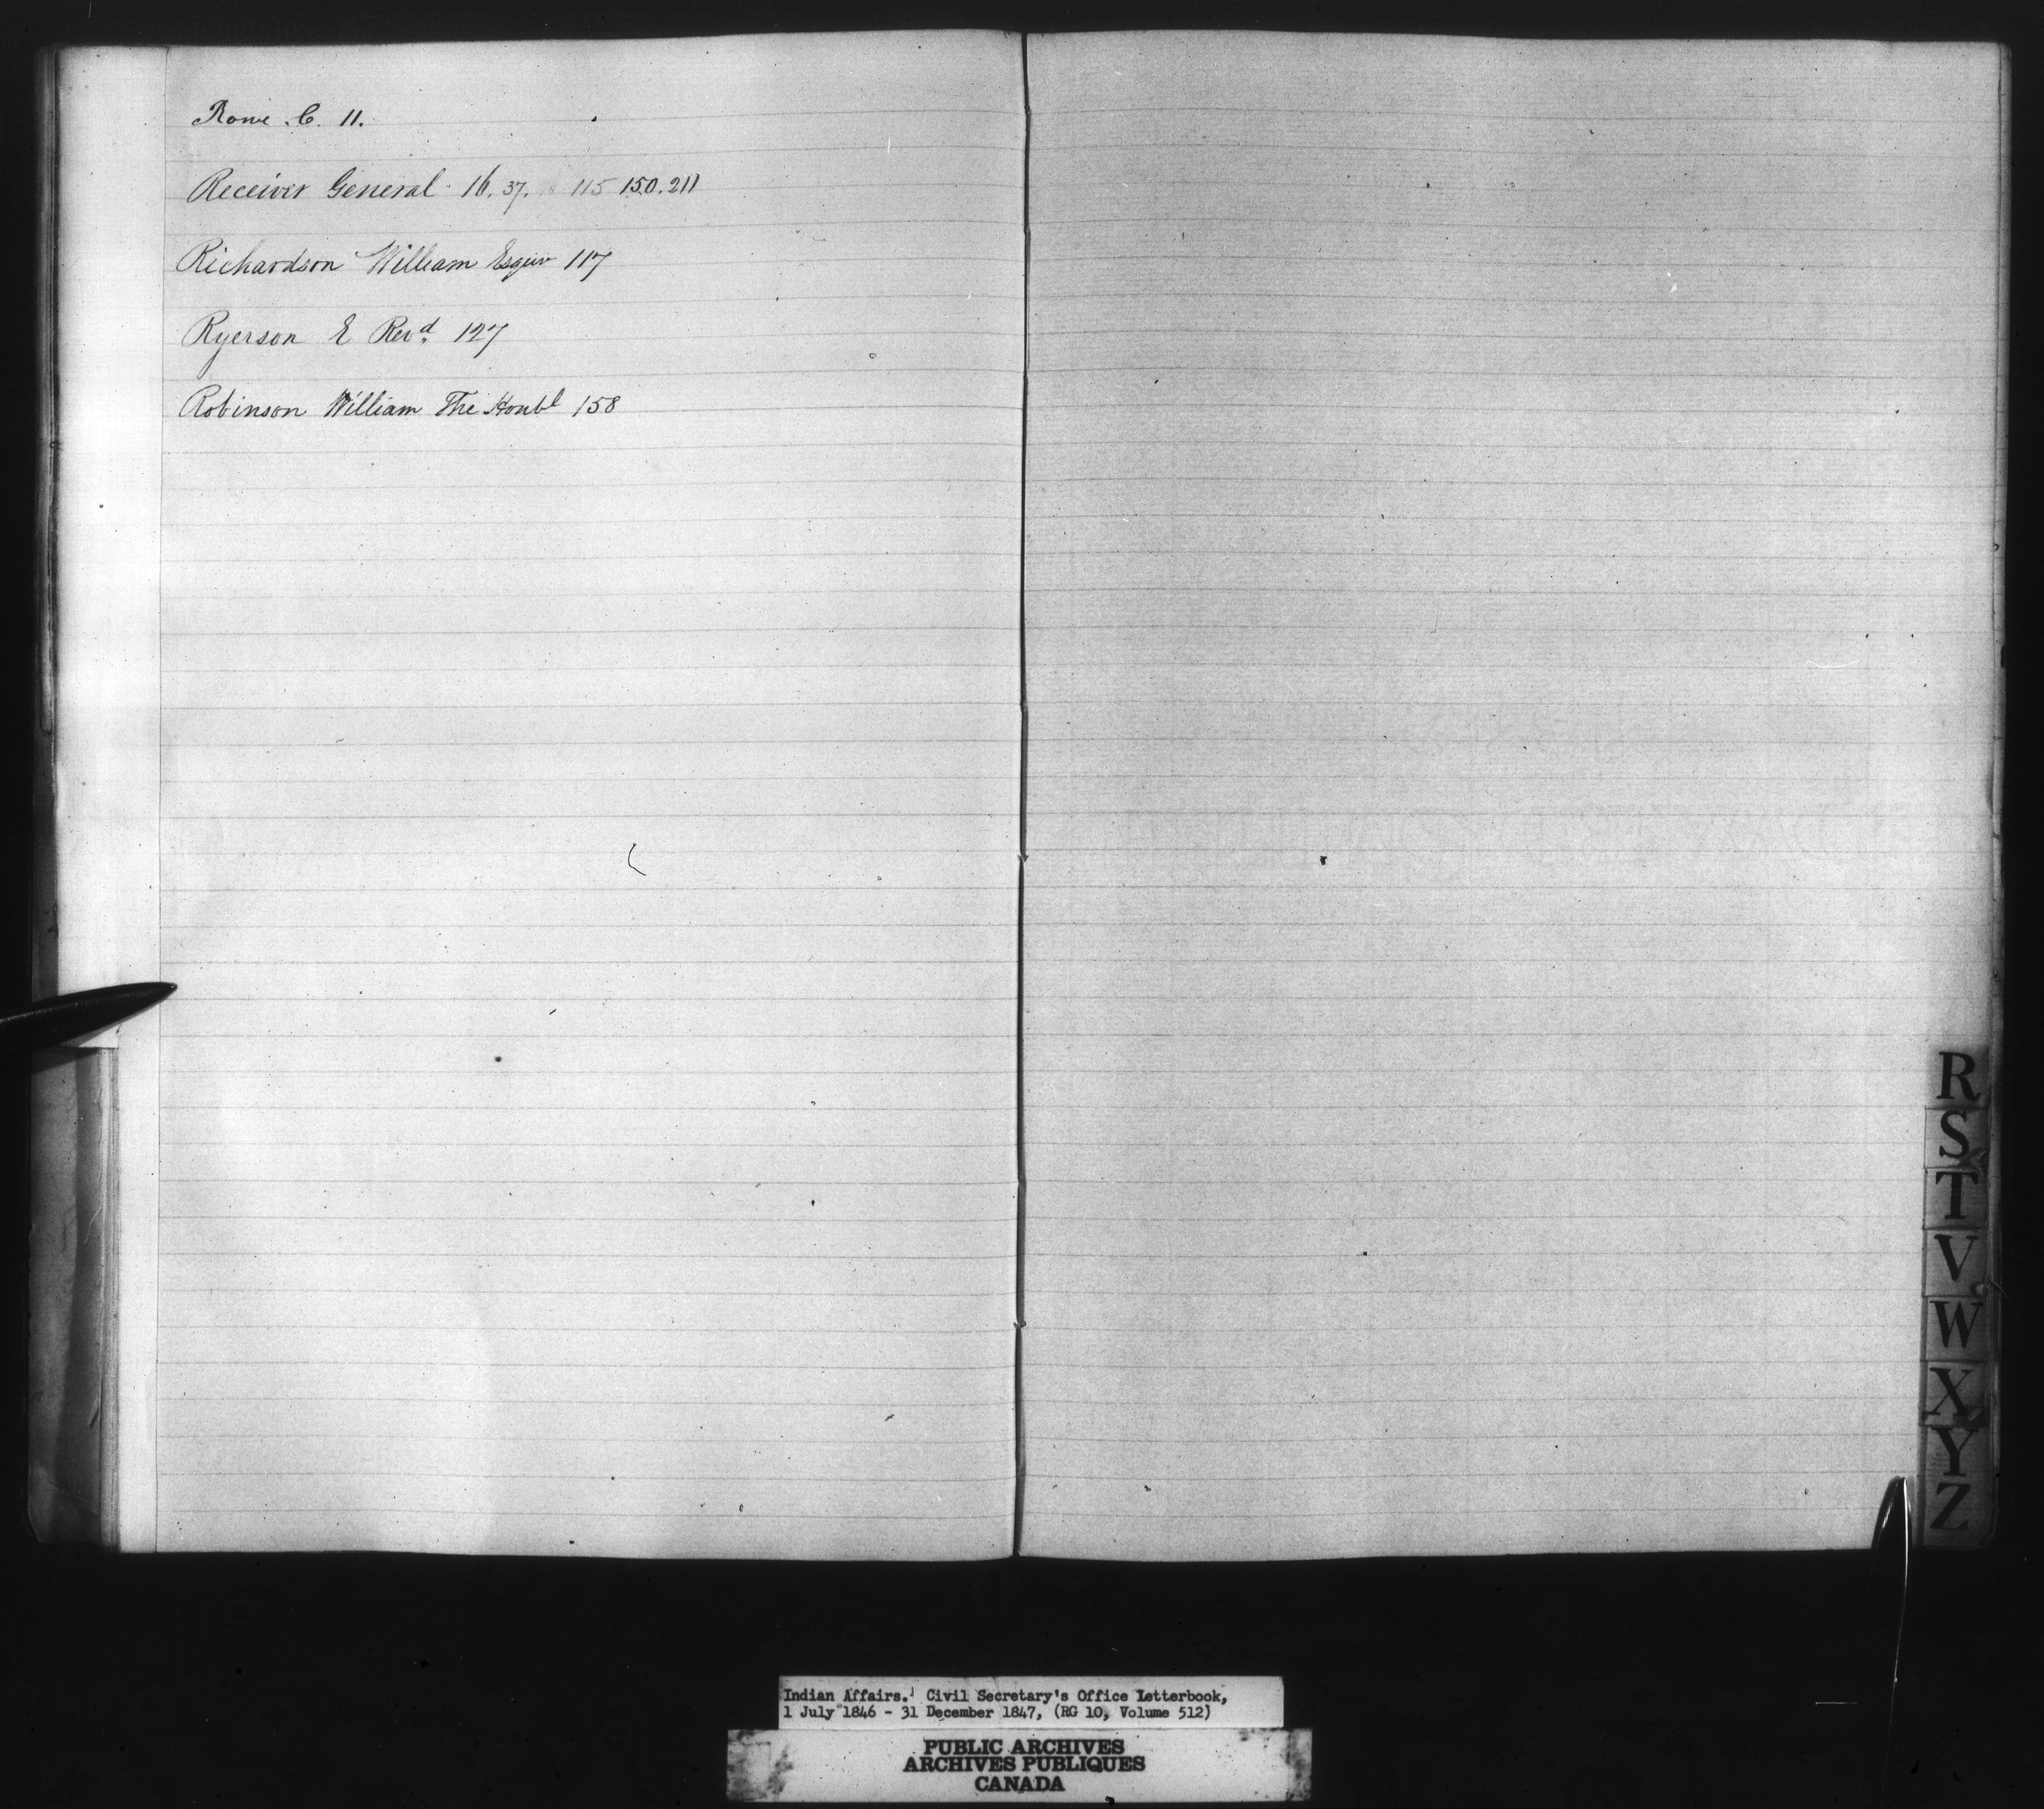 Rowe C. 11.
Receiver General 16. 37. 115 150. 211
Richardson William Esquir 117
Ryerson E Revd. 127
Robinson William The Honbl 158
R
S
T
V
W
X
Y
Z
Indian Affairs. Civil Secretary's Office Letterbook,
1 July 1846 - 31 December 1847, (RG 10, Volume 512)
PUBLIC ARCHIVES
ARCHIVES PUBLIQUES
CANADA